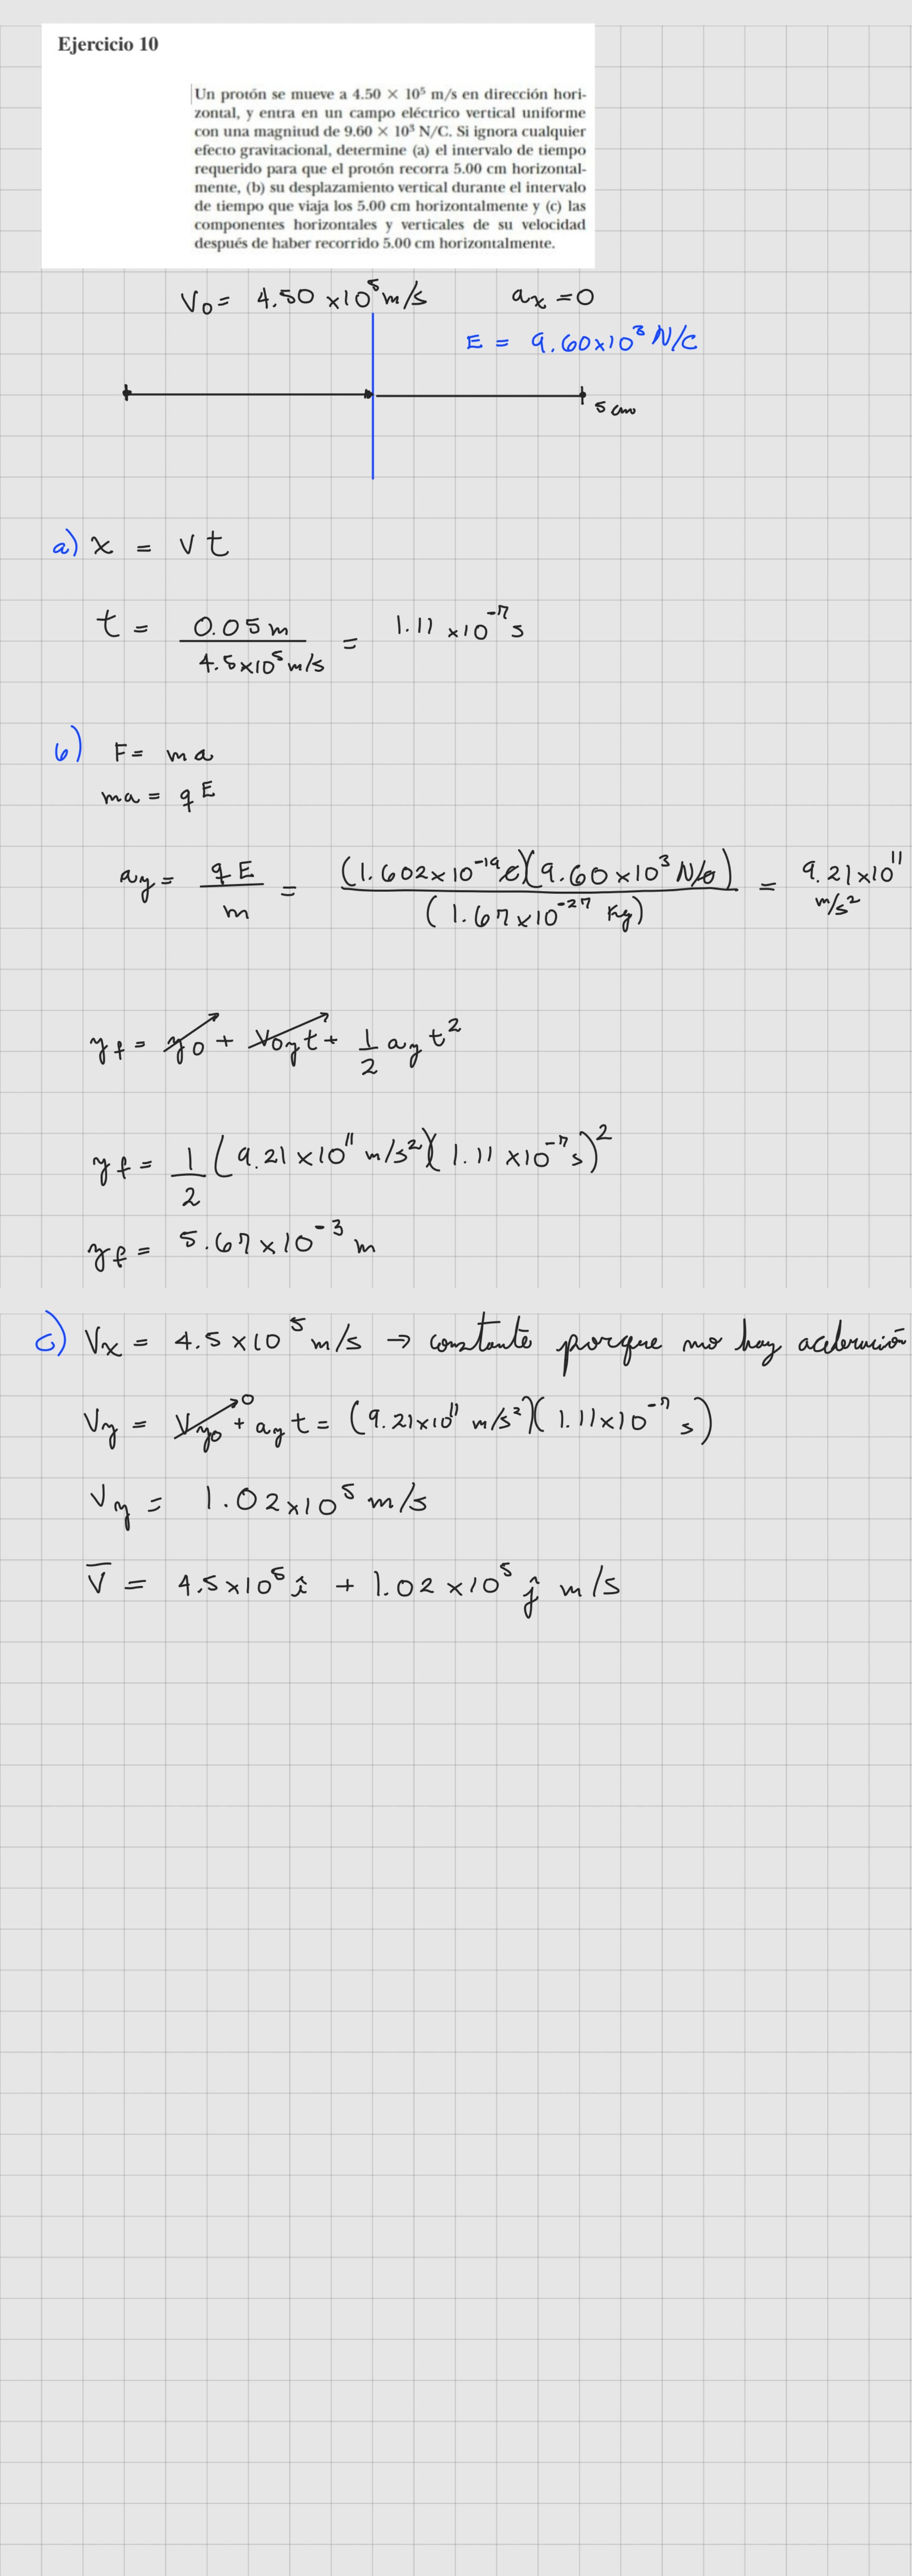 Ejercicio 10
Un protón se mueve a 4.50 × 10⁵ m/s en dirección hori-
zontal, y entra en un campo eléctrico vertical uniforme
con una magnitud de 9.60 × 10³ N/C. Si ignora cualquier
efecto gravitacional, determine (a) el intervalo de tiempo
requerido para que el protón recorra 5.00 cm horizontal-
mente, (b) su desplazamiento vertical durante el intervalo
de tiempo que viaja los 5.00 cm horizontalmente y (c) las
componentes horizontales y verticales de su velocidad
después de haber recorrido 5.00 cm horizontalmente.
V₀ = 4.50 ×10⁵ m/s aₓ = 0
E = 9.60×10³ N/C
5 cm
a) x = v t
t = 0.05 m / 4.5×10⁵ m/s = 1.11 ×10⁻⁷ s
b) F = ma
ma = qE
a_y = qE / m = (1.602×10⁻¹⁹ C)(9.60×10³ N/C) / (1.67×10⁻²⁷ Kg) = 9.21×10¹¹ m/s²
y_f = y₀ + V₀y t + 1/2 a_y t²
y_f = 1/2 (9.21×10¹¹ m/s²)(1.11×10⁻⁷ s)²
y_f = 5.67×10⁻³ m
c) Vₓ = 4.5×10⁵ m/s → constante porque no hay aceleración
V_y = V_y₀ 0 + a_y t = (9.21×10¹¹ m/s²)(1.11×10⁻⁷ s)
V_y = 1.02×10⁵ m/s
V̅ = 4.5×10⁵ î + 1.02×10⁵ ĵ m/s